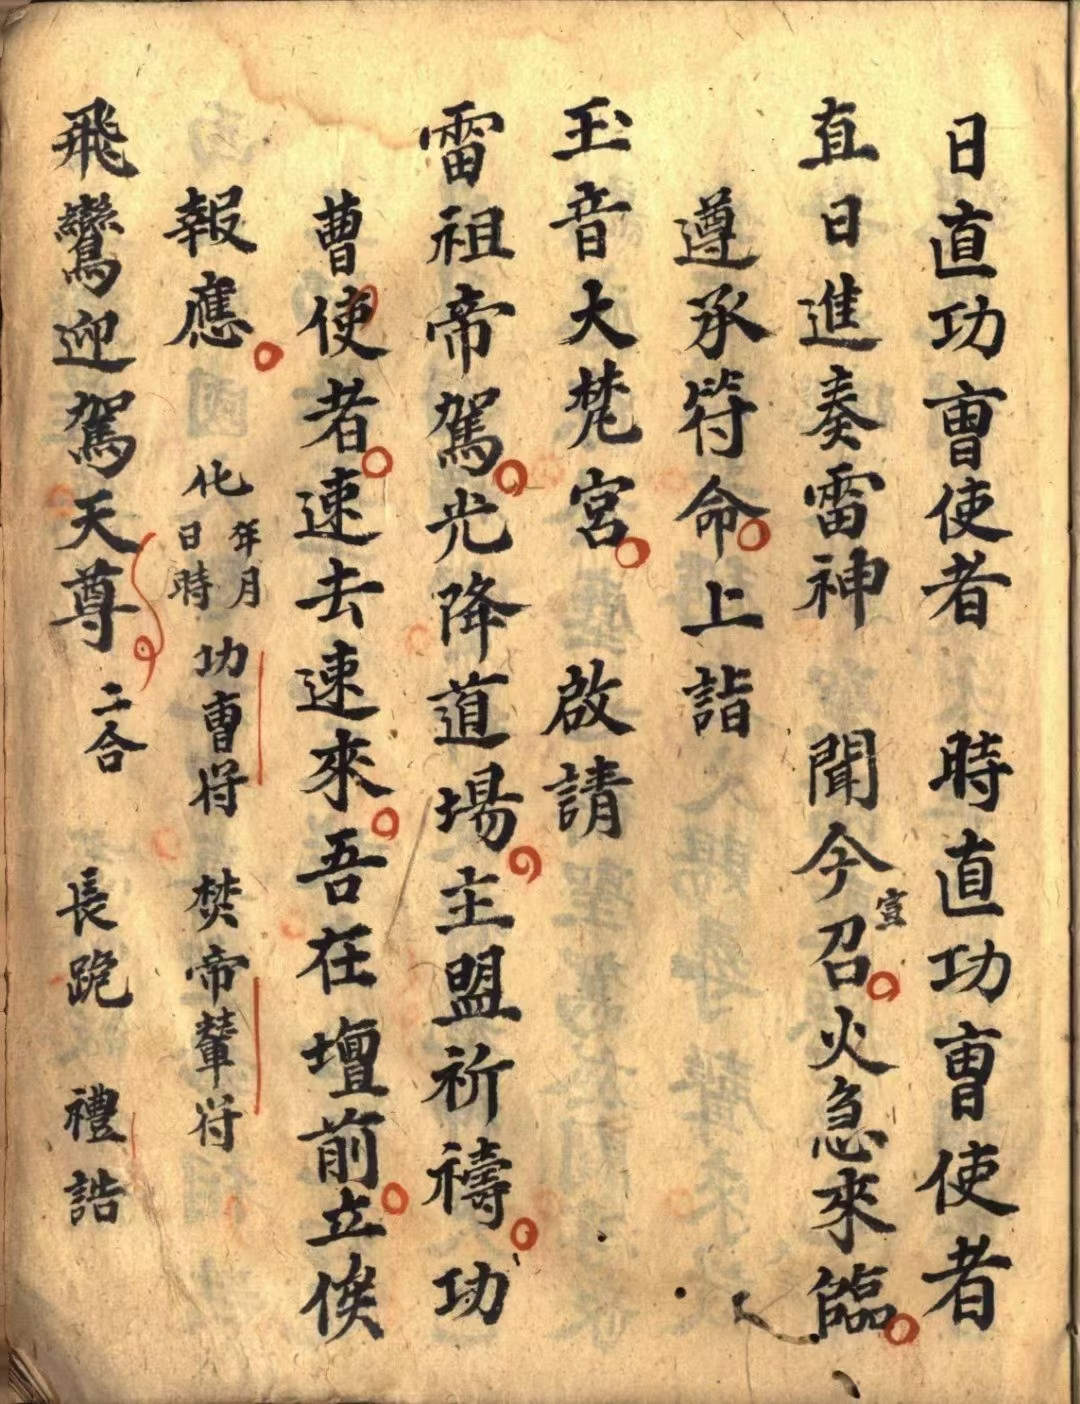 日直功曹使者　時直功曹使者
直日進奏雷神　聞今召宣火急來臨
遵承符命上詣
玉音大梵宮　啟請
雷祖帝駕光降道場主盟祈禱功
曹使者速去速來吾在壇前立俟
報應　化年月日時　功曹符　焚帝輦符
飛鸞迎駕天尊　二合　長跪　禮誥